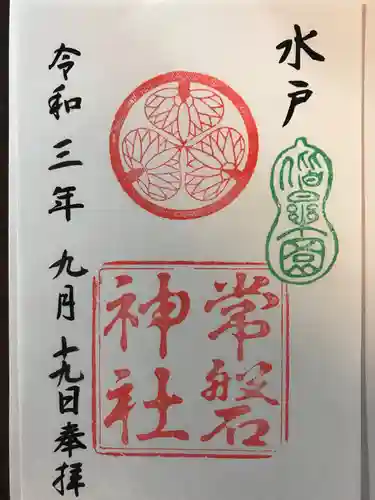 水戸
偕楽園
常磐
神社
令和三年九月十九日奉拝